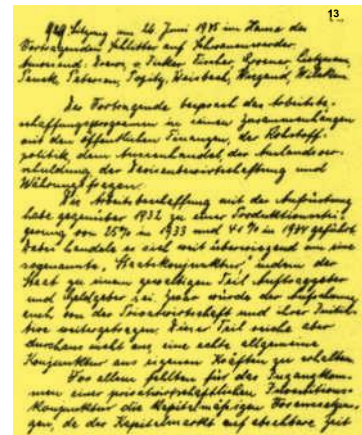 13
Sitzung am 26. Juni 1935 im Hause des
Vortragenden Schlitter auf Schwanenwerder.
Anwesend: v. Tucher, Fischer,
Petersen, Weisbach, Weigand,
Der Vortragende besprach das Arbeitsbe-
schaffungsprogramm in seinen Zusammenhängen
mit den öffentlichen Finanzen, der Rohstoff-
politik, dem Aussenhandel, der Auslandsver-
schuldung, der Devisenbewirtschaftung und
Währungsfragen.
Die Arbeitsbeschaffung mit der Aufrüstung
habe gegenüber 1932 zu einer Produktionsstei-
gerung von 25% in 1933 und 40% in 1934 geführt.
Dabei handele es sich weit überwiegend um eine
sogenannte "Staatskonjunktur" indem der
Staat zu einem gewaltigen Teil Auftraggeber
und Geldgeber sei. Zwar würde der Aufschwung
auch von der Privatwirtschaft und ihrer Initia-
tive weitergetragen. Dieser Teil reiche aber
durchaus nicht aus, eine echte allgemeine
Konjunktur aus eigenen Kräften zu erhalten.
Vor allem fehlten für das Ingangkom-
men einer privatwirtschaftlichen Investitions-
konjunktur die kapitalmäßigen Voraussetzun-
gen, da der Kapitalmarkt auf absehbare Zeit